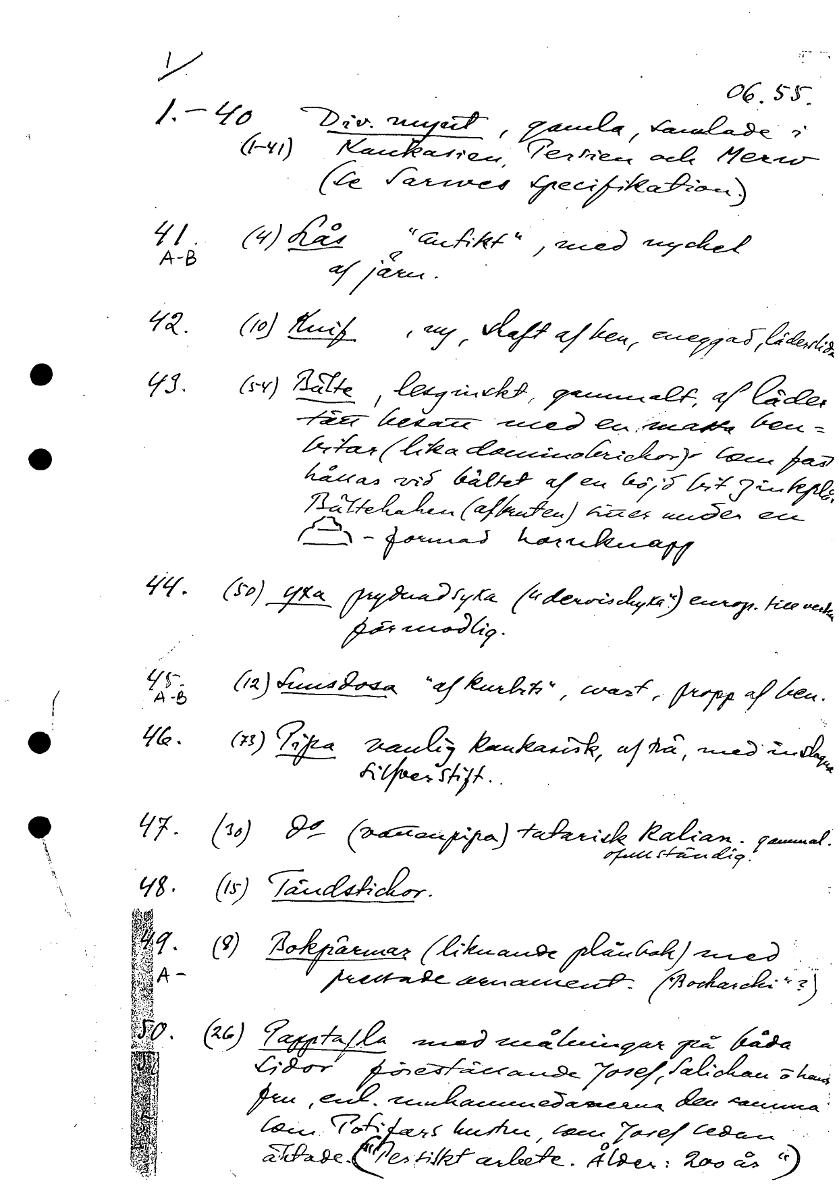 1/
06.55.
1.-40 Div. mynt, gamla, samlade i
(1-41) Kaukasien, Persien och Merw
(se Sarwes specifikation.)
41. (4) Lås "antikt", med nyckel
A-B af järn.
42. (10) Knif, ny, skaft af ben, eneggad, läderslida
43. (54) Bälte, lesginskt, gammalt, af läder
tätt besatt med en massa ben=
bitar (lika dominobrickor) som fast
hållas vid bältet af en böjd bit zinkplåt
Bältehaken (afbruten) sitter under en
- formad hornknapp
44. (50) yxa prydnadsyxa ("dervischyxa") europ. tillverkn
förmodlig.
45. (12) Snusdosa "af kurbits", svart, propp af ben.
A-B
46. (73) Pipa vanlig kaukasisk, af trä, med inslagna
silfverstift.
47. (30) do (vattenpipa) tatarisk Kalian. gammal.
ofullständig.
48. (15) Tändstickor.
49. (8) Bokpärmar (liknande plånbok) med
A- pressade ornament. ("Bocharski"?)
50. (26) Papptafla med målningar på båda
sidor föreställande Josef, Salichan o hans
fru, enl. muhammedanerna den samma
som Potifars hustru, som Josef sedan
äktade. ("Persiskt arbete. Ålder: 200 år")